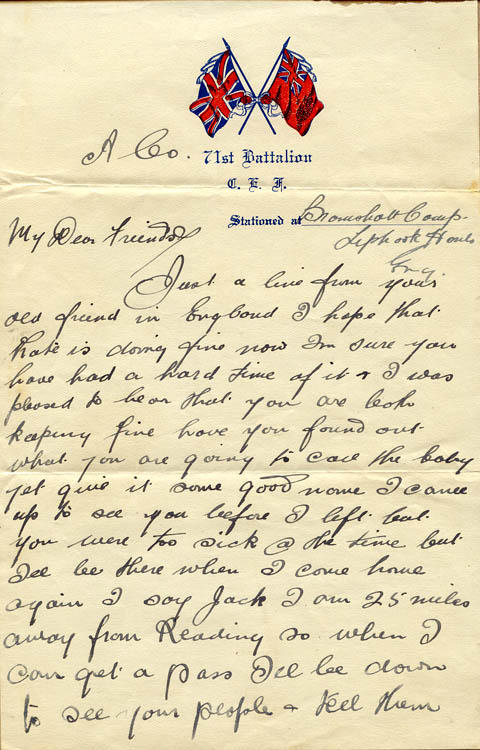 A Co. 71st Battalion
C. E. F.
Stationed at Bramshott Camp.
Liphook Hants
Eng.
My Dear Friends
Just a line from your
old friend in England I hope that
Kate is doing fine now Im sure you
have had a hard time of it & I was
pleased to hear that you are both
keeping fine have you found out
what you are going to call the baby
yet give it some good name I came
up to see you before I left but
you were too sick @ the time but
Ill be there when I come home
again I say Jack I am 25 miles
away from Reading so when I
can get a pass Ill be down
to see your people & tell them